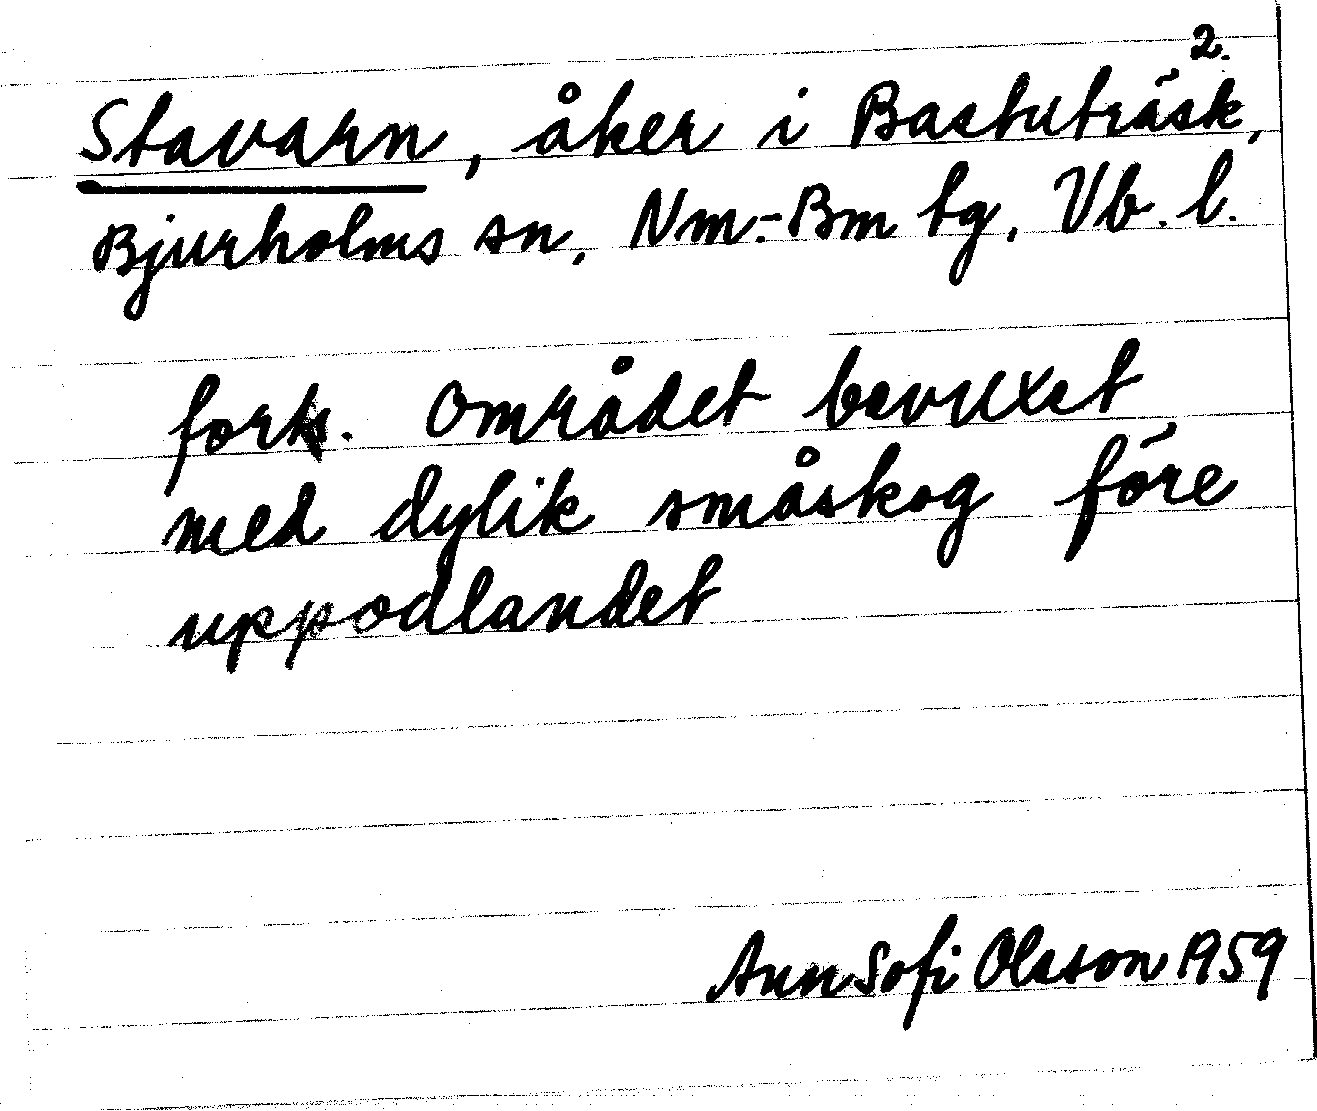 2.
Stavarn, åker i Bastuträsk,
Bjurholms sn, Nm.-Bm tg, Vb. l.
forts. Området bevuxet
med dylik småskog före
uppodlandet
Ann Sofi Olsson 1959